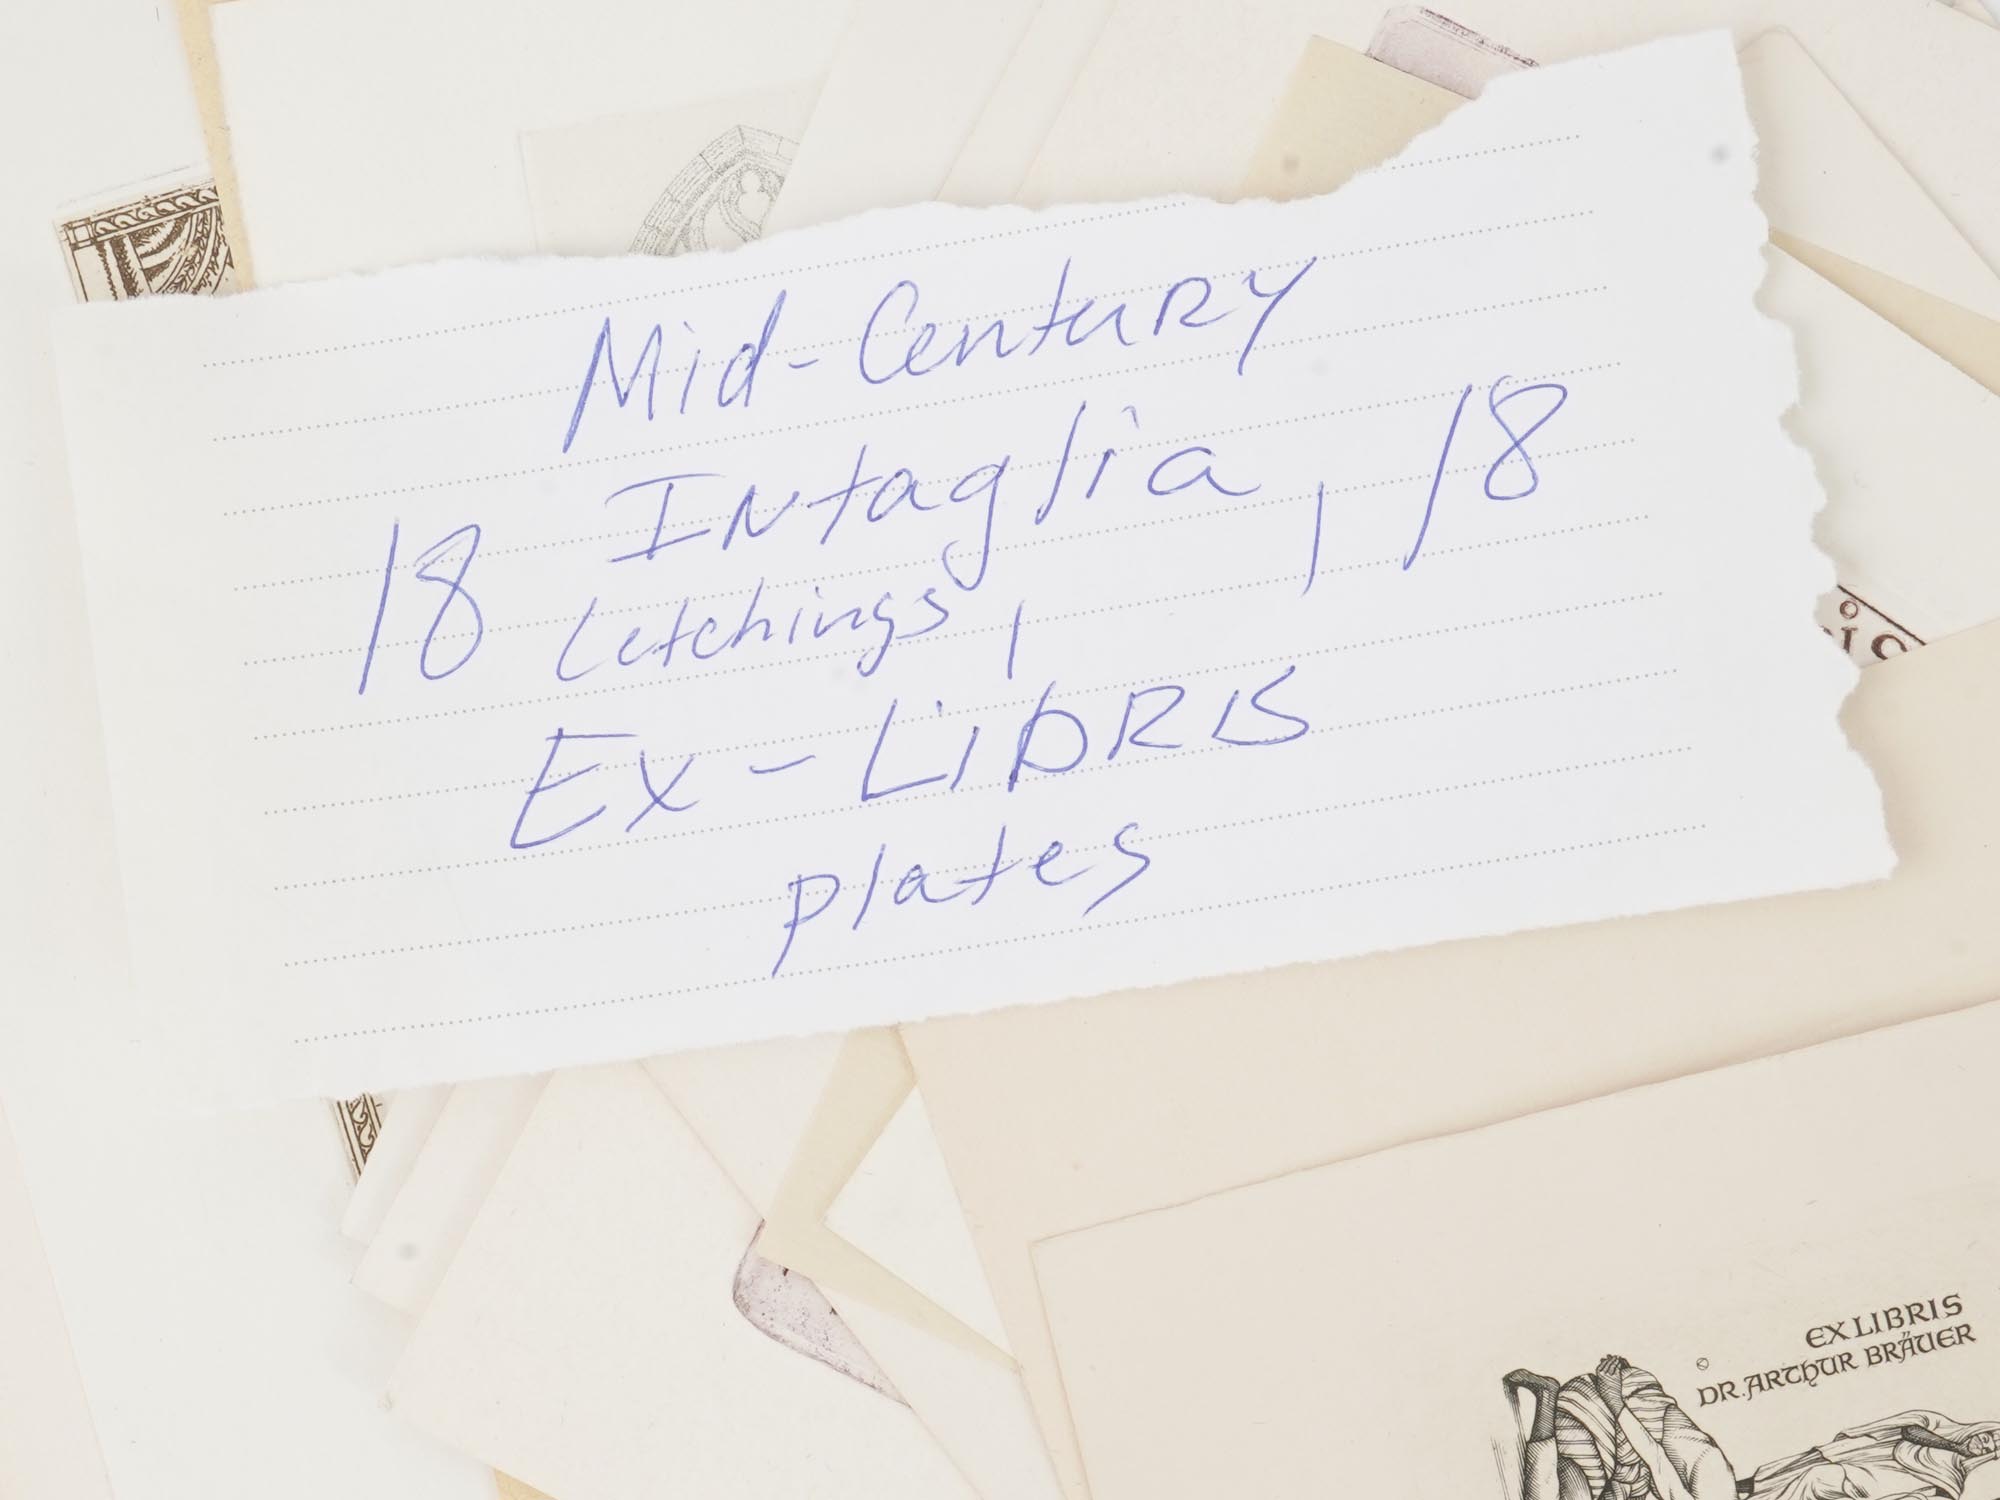 Mid-Century
18 Intaglia, 18
Letchings,
Ex-LiBRIS
plates
EX LIBRIS
DR. ARTHUR BRÄUER